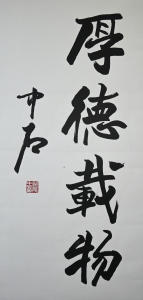 厚德載物
中石